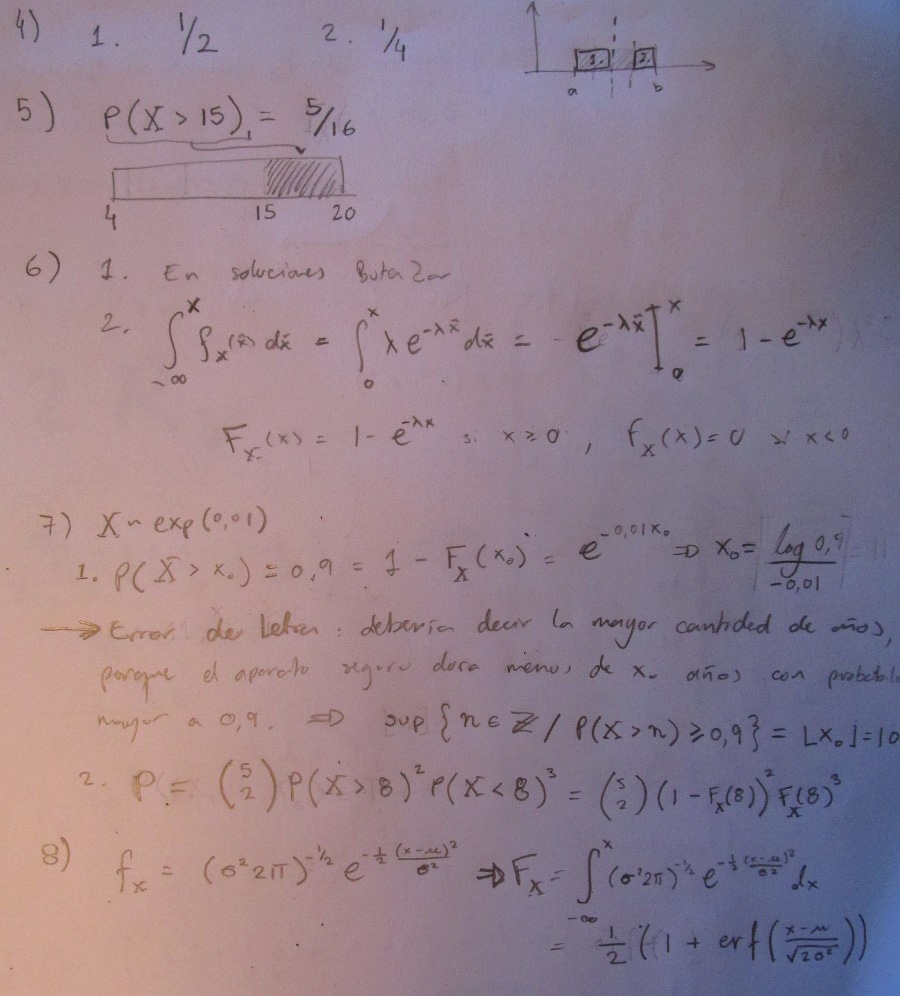 4) 1. 1/2 2. 1/4
1. 2.
a b
5) P(X > 15) = 5/16
4 15 20
6) 1. En soluciones
2. ∫_{-∞}^{x} f_X(x̃) dx̃ = ∫_0^x λ e^{-λx̃} dx̃ = - e^{-λx̃} ]_0^x = 1 - e^{-λx}
F_X(x) = 1 - e^{-λx} si x ≥ 0 , f_X(x) = 0 si x < 0
7) X ~ exp(0,01)
1. P(X > x₀) = 0,9 = 1 - F_X(x₀) = e^{-0,01x₀} ⇒ x₀ = log 0,9 / -0,01
→ Error de letra: debería decir la mayor cantidad de años,
porque el aparato seguro dura menos de x₀ años con
mayor a 0,9. ⇒ sup {n ∈ Z / P(X > n) ≥ 0,9} = ⌊x₀⌋ = 10
2. P = (5 2) P(X > 8)² P(X < 8)³ = (5 2) (1 - F_X(8))² F_X(8)³
8) f_X = (σ² 2π)^{-1/2} e^{-1/2 (x-μ)²/σ²} ⇒ F_X = ∫_{-∞}^{x} (σ² 2π)^{-1/2} e^{-1/2 (x-μ)²/σ²} dx
= 1/2 (1 + erf( (x-μ)/√2σ² ))